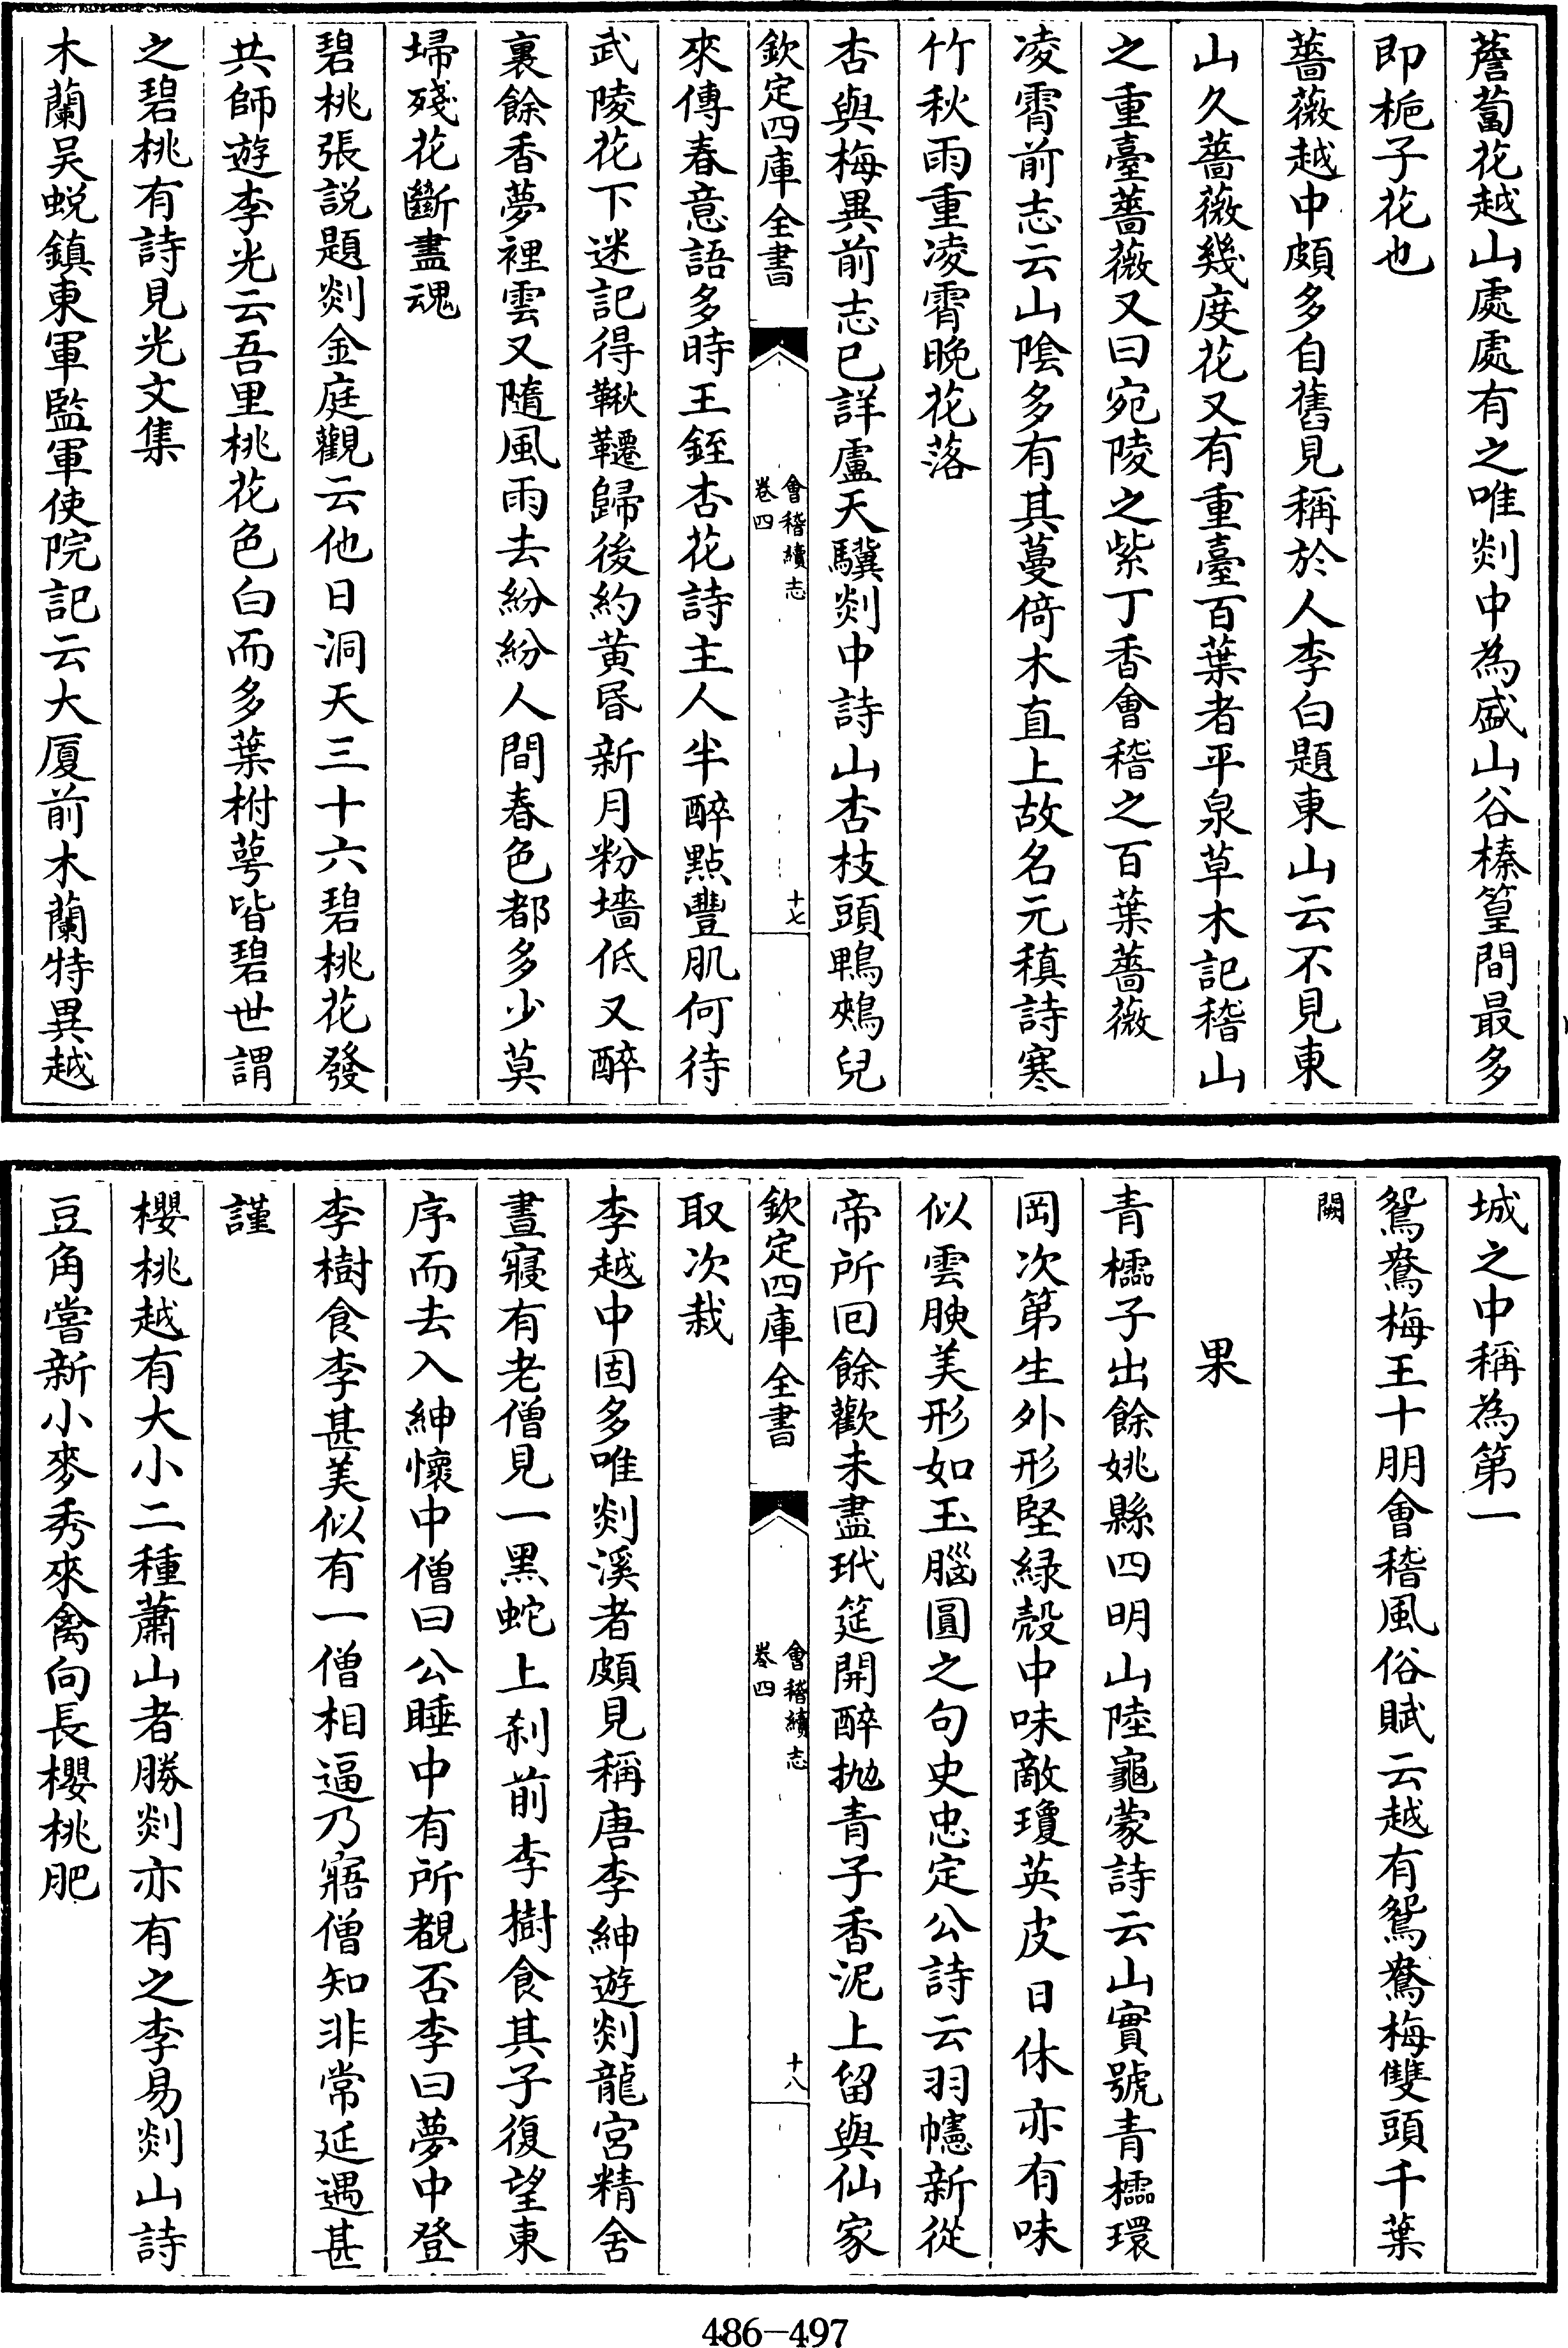 薝蔔花越山處處有之唯剡中為盛山谷榛篁間最多
即梔子花也
薔薇越中頗多自舊見稱於人李白題東山云不見東
山久薔薇幾度花又有重臺百葉者平泉草木記稽山
之重臺薔薇又曰宛陵之紫丁香會稽之百葉薔薇
凌霄前志云山隂多有其蔓倚木直上故名元稹詩寒
竹秋雨重凌霄晚花落
杏與梅異前志已詳盧天驥剡中詩山杏枝頭鵯鵊兒
欽定四庫全書
會稽續志
卷四
十七
來傳春意語多時王銍杏花詩主人半醉點豐肌何待
武陵花下迷記得鞦韆歸後約黄昏新月粉墻低又醉
裏餘香夢裡雲又隨風雨去紛紛人間春色都多少莫
埽殘花斷盡魂
碧桃張説題剡金庭觀云他日洞天三十六碧桃花發
共師遊李光云吾里桃花色白而多葉柎萼皆碧世謂
之碧桃有詩見光文集
木蘭吴蜕鎮東軍監軍使院記云大厦前木蘭特異越
城之中稱為第一
鴛鴦梅王十朋會稽風俗賦云越有鴛鴦梅雙頭千葉
闕
果
青櫺子出餘姚縣四明山陸龜蒙詩云山實號青櫺環
岡次第生外形堅緑殻中味敵瓊英皮日休亦有味
似雲腴美形如玉腦圓之句史忠定公詩云羽幰新從
帝所回餘歡未盡玳筵開醉抛青子香泥上留與仙家
欽定四庫全書
會稽續志
卷四
十八
取次栽
李越中固多唯剡溪者頗見稱唐李紳遊剡龍宮精舍
晝寢有老僧見一黑蛇上刹前李樹食其子復望東
序而去入紳懷中僧曰公睡中有所覩否李曰夢中登
李樹食李甚美似有一僧相逼乃寤僧知非常延遇甚
謹
櫻桃越有大小二種蕭山者勝剡亦有之李易剡山詩
豆角嘗新小麥秀來禽向長櫻桃肥
486-497